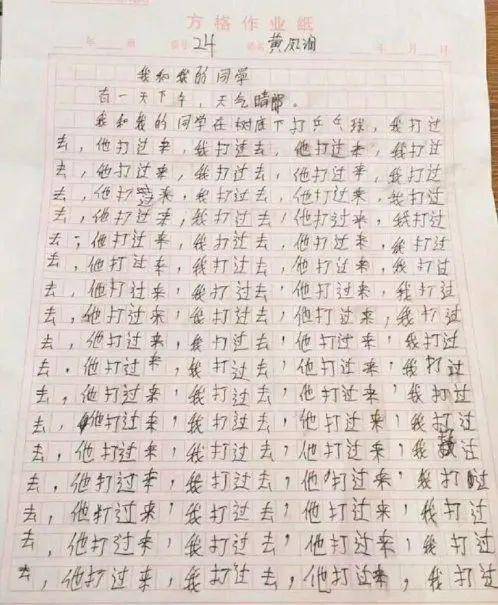 方格作业纸
年 班 24 姓名 黄凤 年 月 日
我和我的同学
有一天下午，天气晴朗。
我和我的同学在树底下打乒乓球，我打过
去，他打过来，我打过去，他打过来，我打过
去，他打过来，我打过去，他打过来，我打过
去，他打过来，我打过去，他打过来，我打过
去，他打过来，我打过去，他打过来，我打过
去，他打过来，我打过去，他打过来，我打过
去，他打过来，我打过去，他打过来，我打过
去，他打过来，我打过去，他打过来，我打过
去，他打过来，我打过去，他打过来，我打过
去，他打过来，我打过去，他打过来，我打过
去，他打过来，我打过去，他打过来，我打过
去，他打过来，我打过去，他打过来，我打过
去，他打过来，我打过去，他打过来，我打过
去，他打过来，我打过去，他打过来，我过
去，他打过来，我打过去，他打过来，我打过
去，他打过来，我打过去，他打过来，我打过
去，他打过来，我打过去，他打过来，我打过
去，他打过来，我打过去，他打过来，我打过